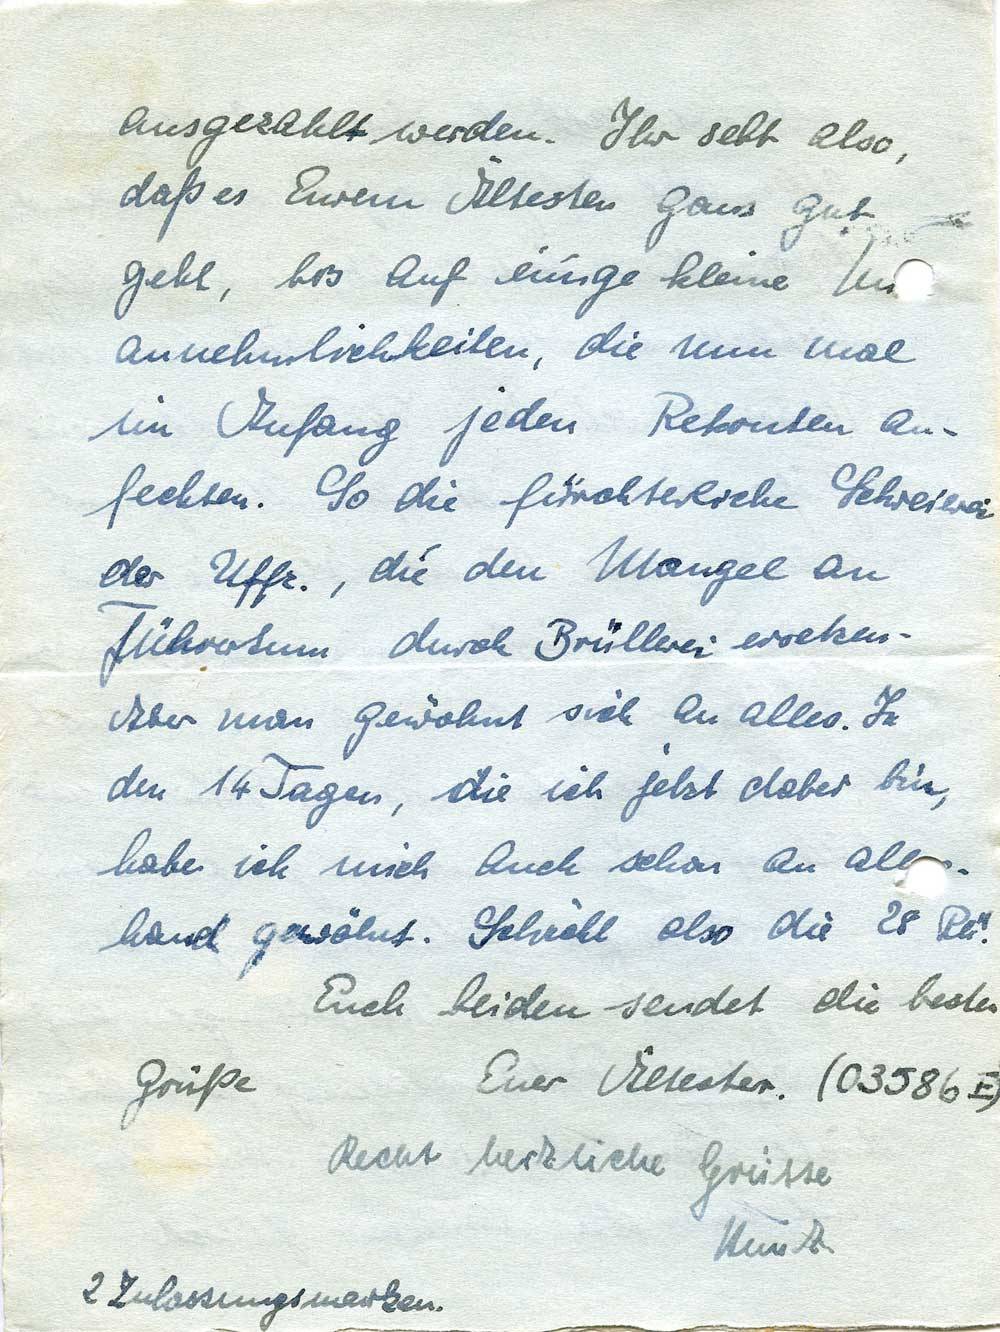 ausgezahlt werden. Ihr seht also,
daß es Eurem Ältesten ganz gut
geht, bis auf einige kleine Un
annehmlichkeiten, die nun mal
im Anfang jeden Rekruten an-
fechten. So die fürchterliche Schreierei
der Uffz., die den Mangel an
Führertum durch Brüllerei ersetzen.
Aber man gewöhnt sich an alles. In
den 14 Tagen, die ich jetzt dabei bin,
habe ich mich auch schon an aller-
hand gewöhnt. Schickt also die 28
Euch beiden sendet die besten
Grüße Euer Ältester. (03586 E)
Recht herzliche Grüsse
2 Zulassungsmarken.